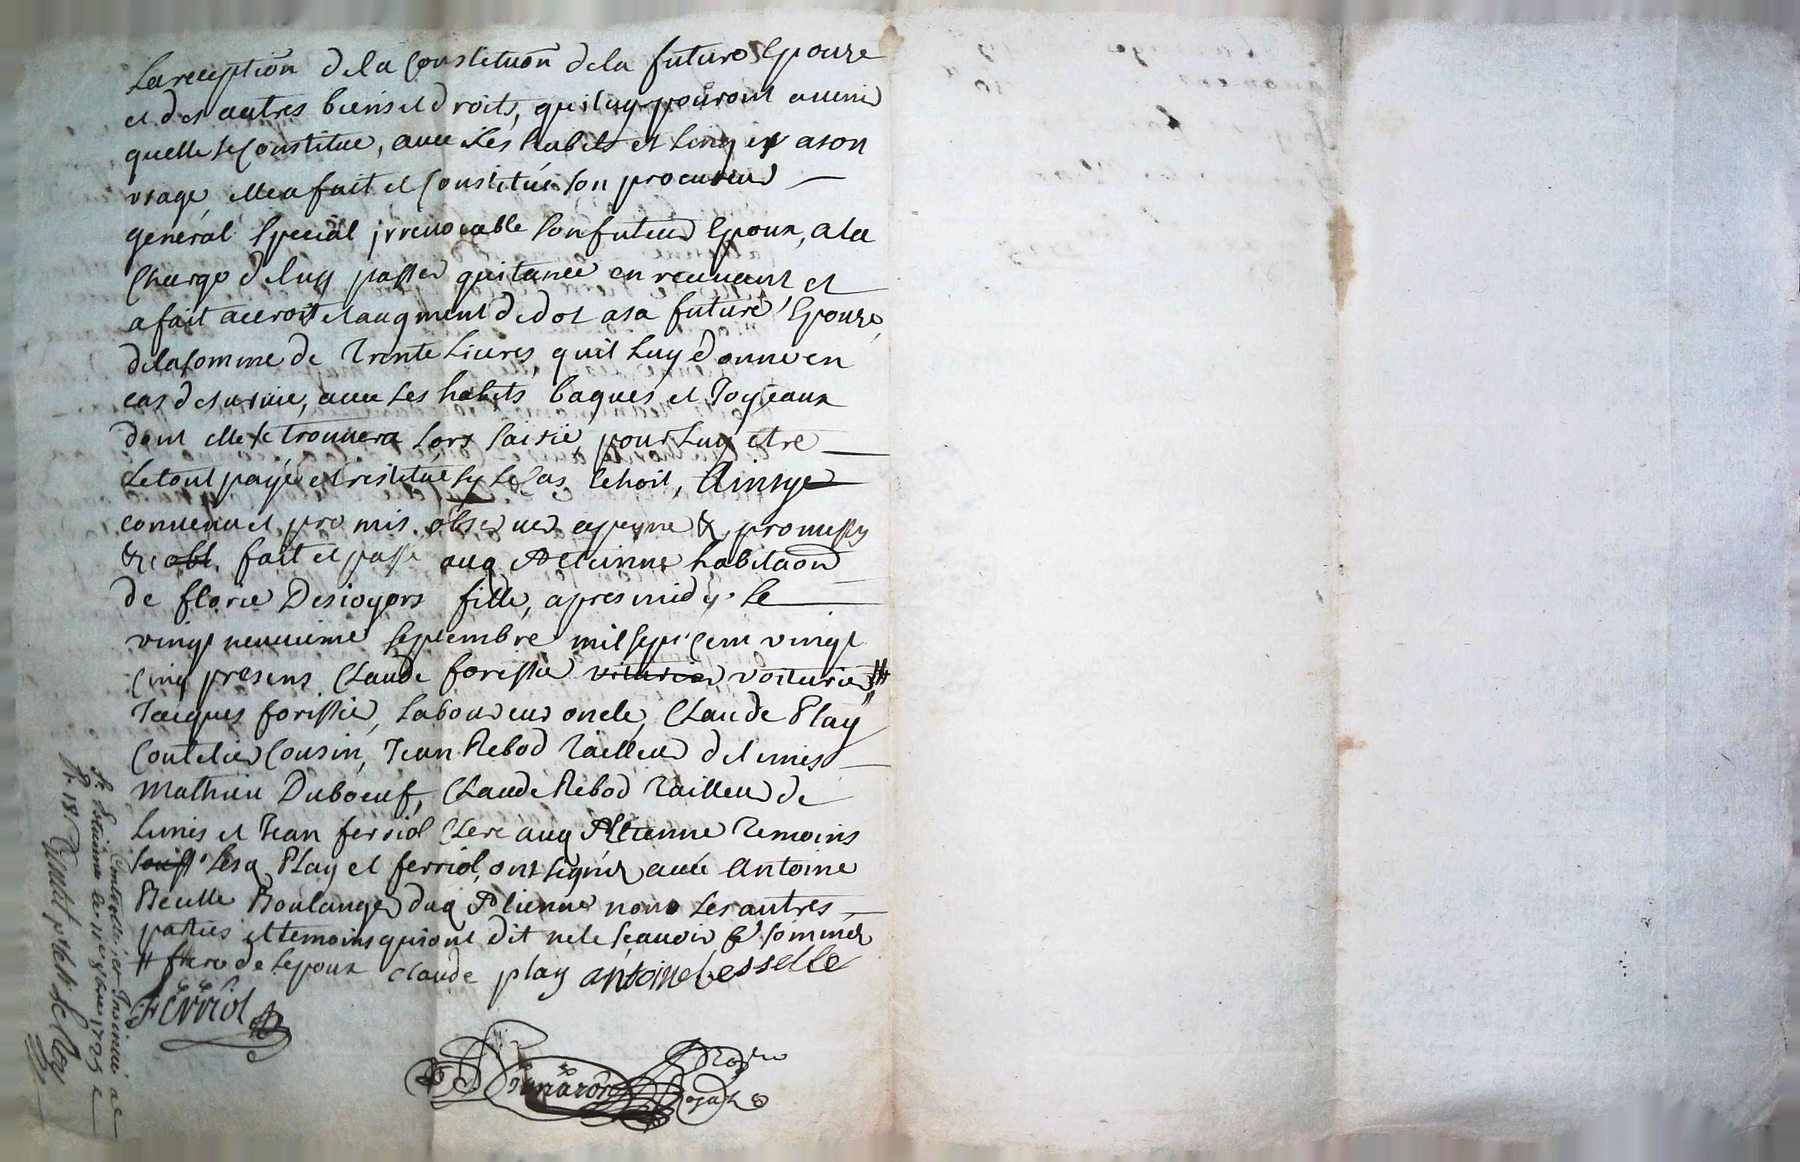 La reception de la Constituon de la future Epouze
et des autres biens et droits, qui luy pouront avenir
quelle se Constitue, avec ses habits et linge a son
usage elle a fait et Constitué son procureur
general special irrevocable son futeur Epoux, a la
Charge de luy passer quitance en recevant et
a fait accroit et augment de dot a sa future Epouze
de la somme de trente Livres, quil luy donne en
cas de survie, avec les habits bagues et Joyeaux
dont elle se trouvera lors saisie, pour luy etre
Le tout payé et restitué sy le Cas echoit, Ainsy
convenu et promis observer a peyne &, promess
& obl. fait et passé aud St Etienne habitaon
de florie Desjoyers fille, apres midy. Le
vingt neuvieme septembre mil sept Cent vingt
Cinq presens Claude forissier voiturier #
Jacques forissier, Laboureur oncle, Claude Play
Coutelier Cousin, Jean Rebod tailleur de limes
Mathieu Duboeuf, Claude Rebod tailleur de
Limes et Jean ferriol Clerc aud St Etienne temoins
Lesd Play et ferriol, ont signés avec Antoine
Boulanger dud St Etienne non Les autres
parties et temoins qui ont dit ne le scavoir & sommés
# frere de lepoux claude play antoine besselle
Ferriol
Controllé et Insinué a
St Estienne le 11e 8bre 1725
R. 18.